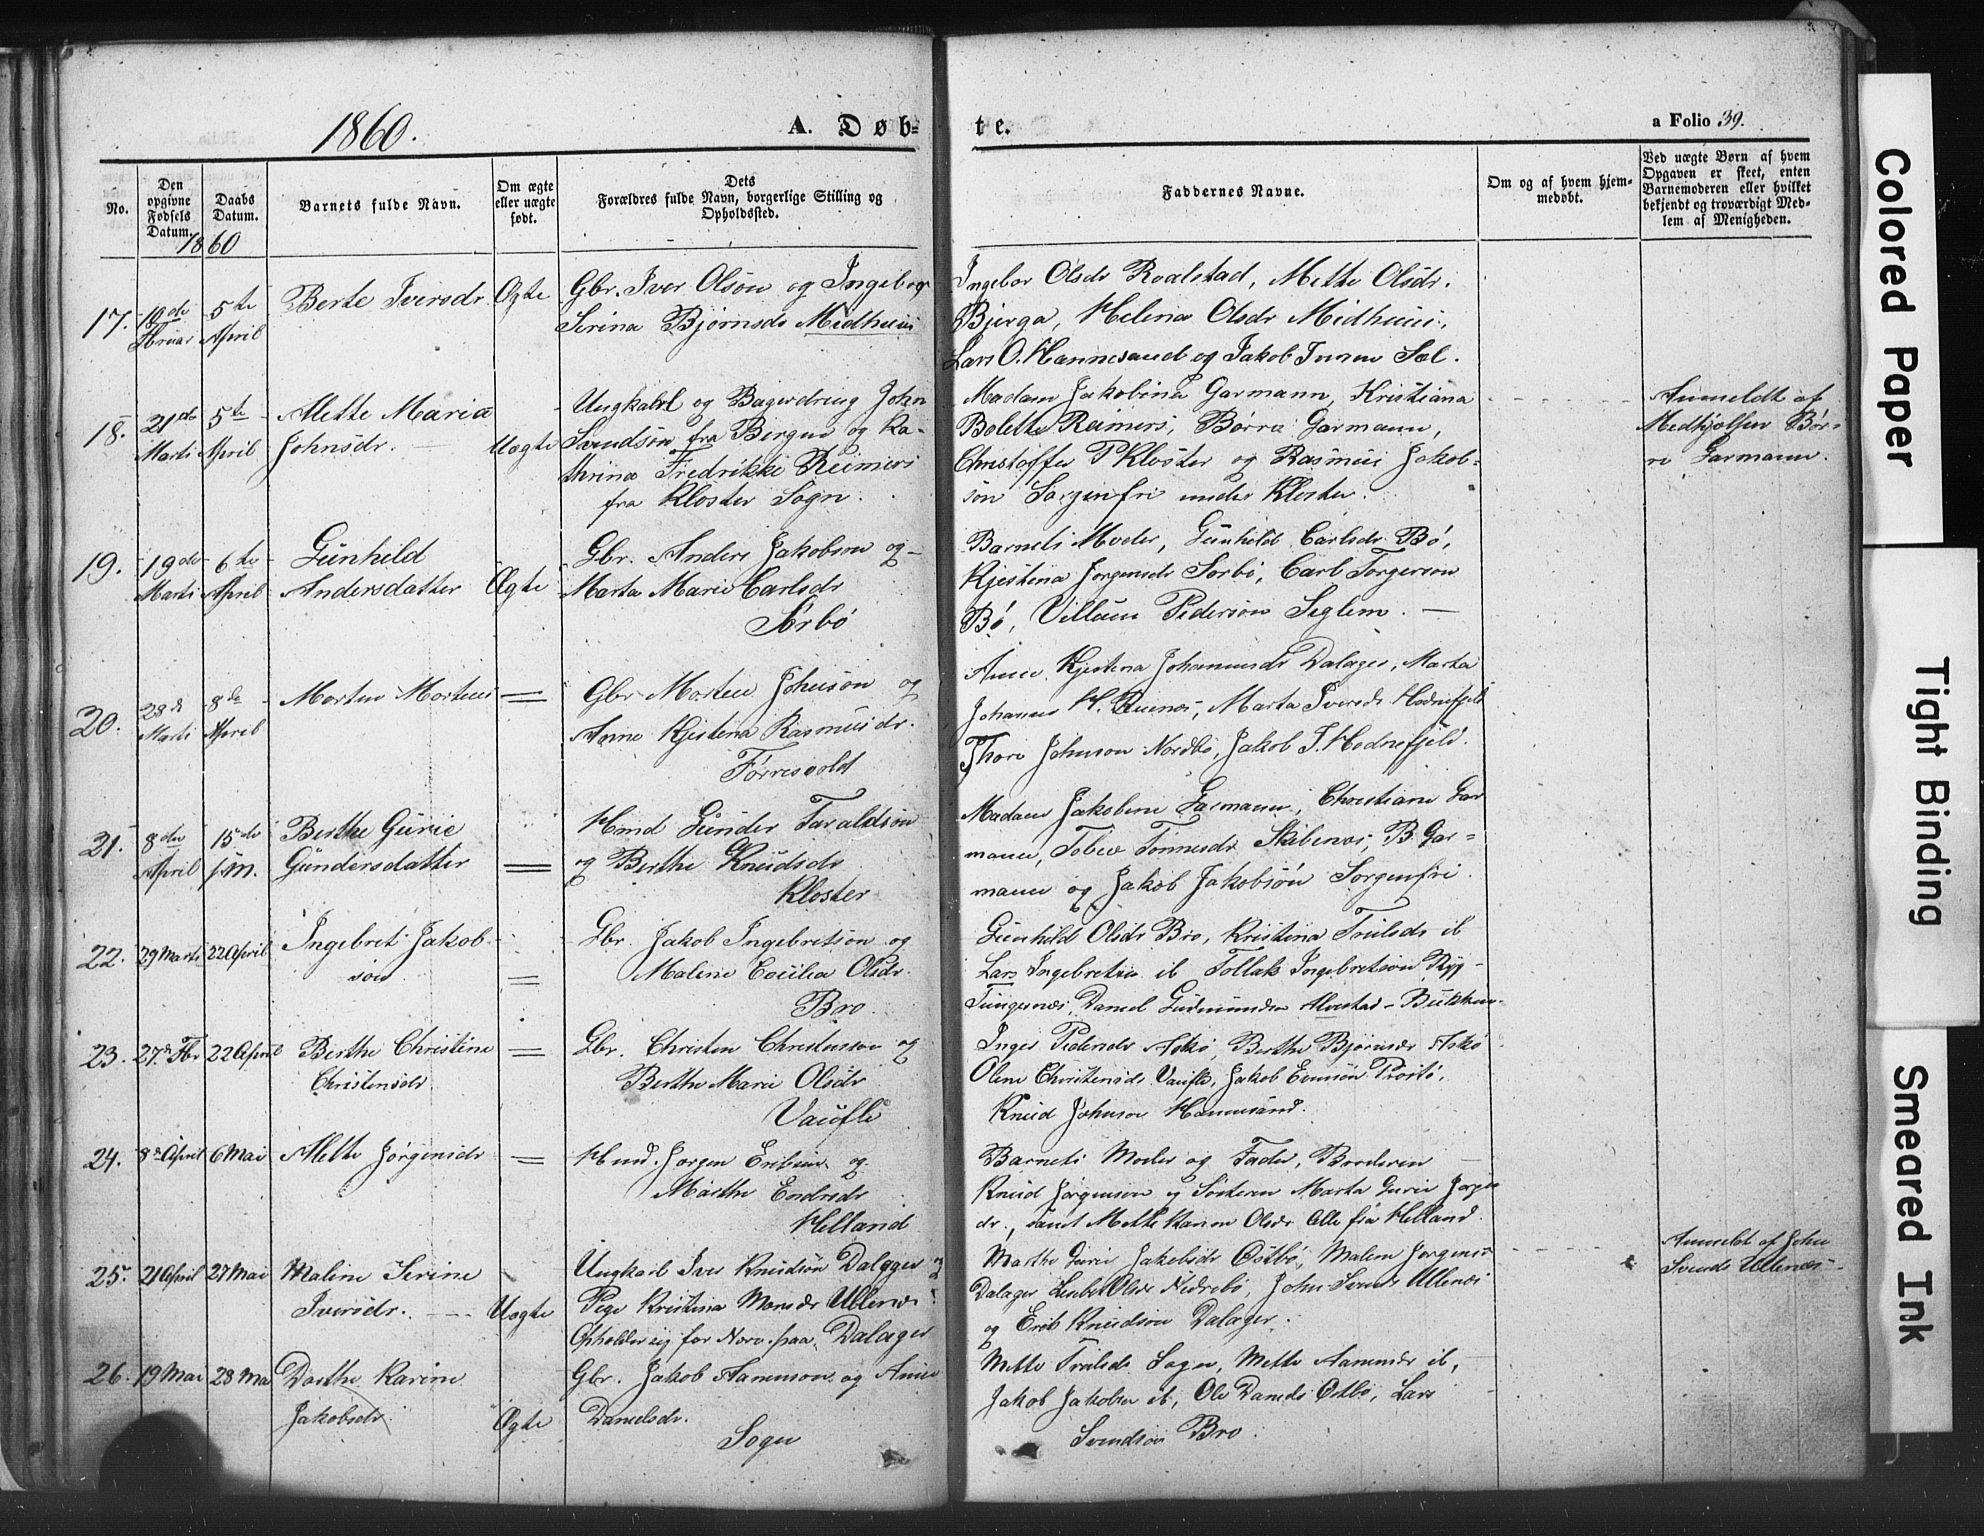 1860.
A. Døb-
te.
a Folio 39.
No.
Den opgivne Fødsels Datum.
Daabs Datum.
Barnets fulde Navn.
Om ægte eller uægte født.
Dets Forældres fulde Navn, borgerlige Stilling og Opholdssted.
Faddernes Navne.
Om og af hvem hjemmedøbt.
Ved uægte Børn af hvem Opgaven er skeet, enten Barnemoderen eller hvilket bekjendt og troværdigt Medlem af Menigheden.
1860
17.
5te April
Berte Iversdr.
Ægte
Gbr. Iver Olsøn og Ingeborg
Serina Bjørnsdr Midhuus
Ingebor Olsdr Roalstad, Mette Olsdr.
Bjerga, Helena Olsdr Midhuus,
Lars O. Hannesand og Jakob Iversen Sel.
18.
21de Marti
5te April
Mette Maria
Johnsdr.
Uægte
Ungkarl og Bagerdreng John
Svendsøn fra Bergen og Ka-
thrina Fredrikke Reimers
fra Kloster Sogn.
Madam Jakobina Garmann, Kristiana
Bolette Reimers, Børre Garmann,
Christoffer P Kloster og Rasmus Jakob-
søn Sorgenfri under Kloster.
Anmeldt af
Medhjælper Bør-
re Garmann.
19.
19de Marti
6te April
Gunhild
Andersdatter
Ægte
Gbr. Anders Jakobson og
Marta Marie Carlsdr
Sørbö
Barnets Moder, Gunhild Carlsdr Bö,
Kjestina Jørgensdr Sørbö, Carl Torgersøn
Bö, Villum Pedersøn Seglem.
20.
28de Marti
8de April
Morten Mortens
Gbr Morten Johnsøn og
Anne Kjestina Rasmusdr.
Førresvold
Anne Kjestina Johannesdr Dalager, Marta
Johannes H. , Marta Iversdr Hodnefjeld
Thore Johnson Nordbø, Jakob I. Hodnefjeld.
21.
8de April
15de f.m.
Berthe Gurie
Gundersdatter
Hmd Gunder Taraldsøn
og Berthe Knudsdr
Kloster
Madam Jakobine Garmann, Christiane Gar
mann, Tobie Tonnesdr Skibenes, B. Gar-
mann og Jakob Jakobsøn Sorgenfri.
22.
29 Marti
22 April
Ingebret Jakob-
søn
Gbr. Jakob Ingebretsøn og
Malene Cecilia Olsdr.
Bro.
Gunhild Olsdr Bro, Kristina Trulsdr ib
Lars Ingebretsøn ib Tollak Ingebretsøn Ryg-
Tungenæs, Daniel Gudmundsen Alvestad -
23.
27de Fbr
22 April
Berthe Christine
Christensdr
Gbr. Christen Christenson og
Berthe Marie Olsdr
Vaufle
Inger Pedersdr Askø, Berthe Bjørnsdr Askø
Olene Christensdr Vaufle, Jakob Prøstö,
Knud Johnson Hannesand.
24.
8de April
6 Mai
Mette Jørgensdr
Hmd. Jørgen Eriksen og
Marthe Endresdr
Helland
Barnets Moder og Fader, Broderen
Knud Jørgenson og Søsteren Marta Gurie Jørgens
dr., samt Mette Karine Olsdr Alle fra Helland.
25.
21 April
27 Mai
Maline Serine
Iversdr.
Uægte
Ungkarl Iver Knudsøn Dalager
Pige Kristina Monsdr Ullenes
Opholder sig for Nærv. paa Dalager
Marthe Gurie Jakobsdr Østbö, Malene Jørgens
Dalager, Olsdr Nedrebö, John Svends Ullenes
og Erik Knudsøn Dalager.
Anmeldt af John
Svends Ullenæs
26.
19 Mai
28 Mai
Dorthe Karine
Jakobsdr.
Ægte
Gbr. Jakob Hansson og Anne
Danielsdr.
Sogn
Mette Trulsdr Sogn, Mette ib,
Jakob Jakobsen ib, Ole Daniels Østbö, Lars
Svendsøn Bro.
Colored Paper
Tight Binding
Smeared Ink